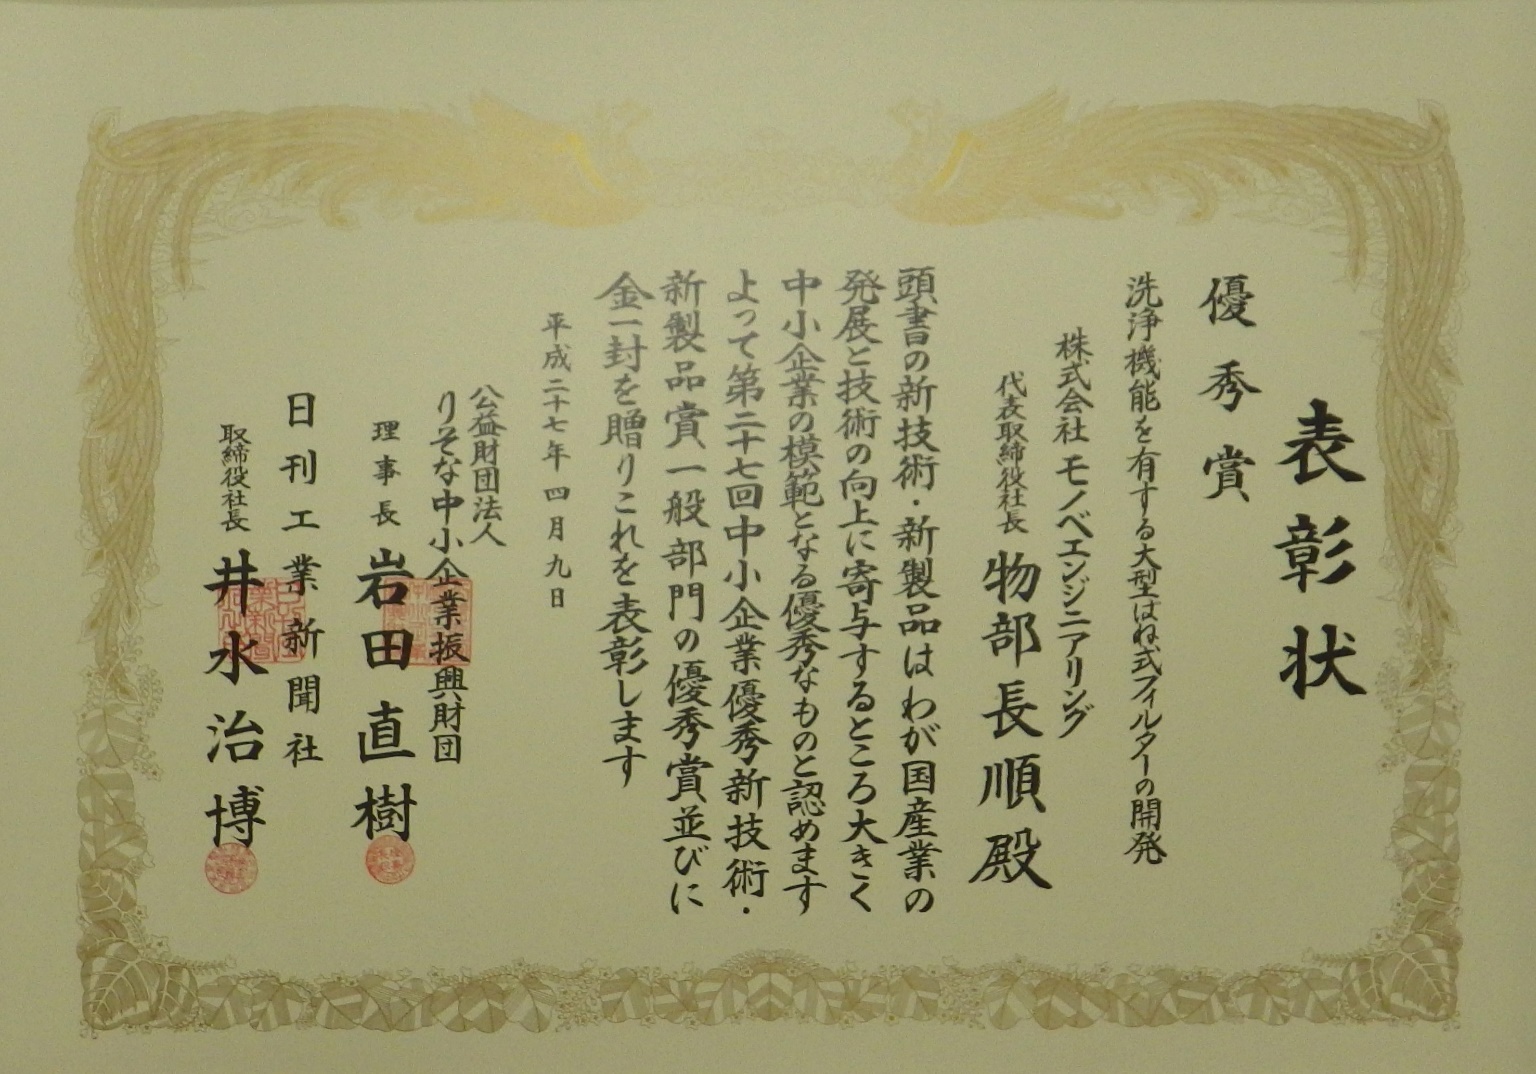 表彰状
優秀賞
洗浄機能を有する大型はね式フィルターの開発
株式会社 モノベエンジニアリング
代表取締役社長 物部長順殿
頭書の新技術・新製品はわが国産業の
発展と技術の向上に寄与するところ大きく
中小企業の模範となる優秀なものと認めます
よって第二十七回中小企業優秀新技術・
新製品賞一般部門の優秀賞並びに
金一封を贈りこれを表彰します
平成二十七年四月九日
公益財団法人
りそな中小企業振興財団
理事長 岩田直樹
日刊工業新聞社
取締役社長 井水治博